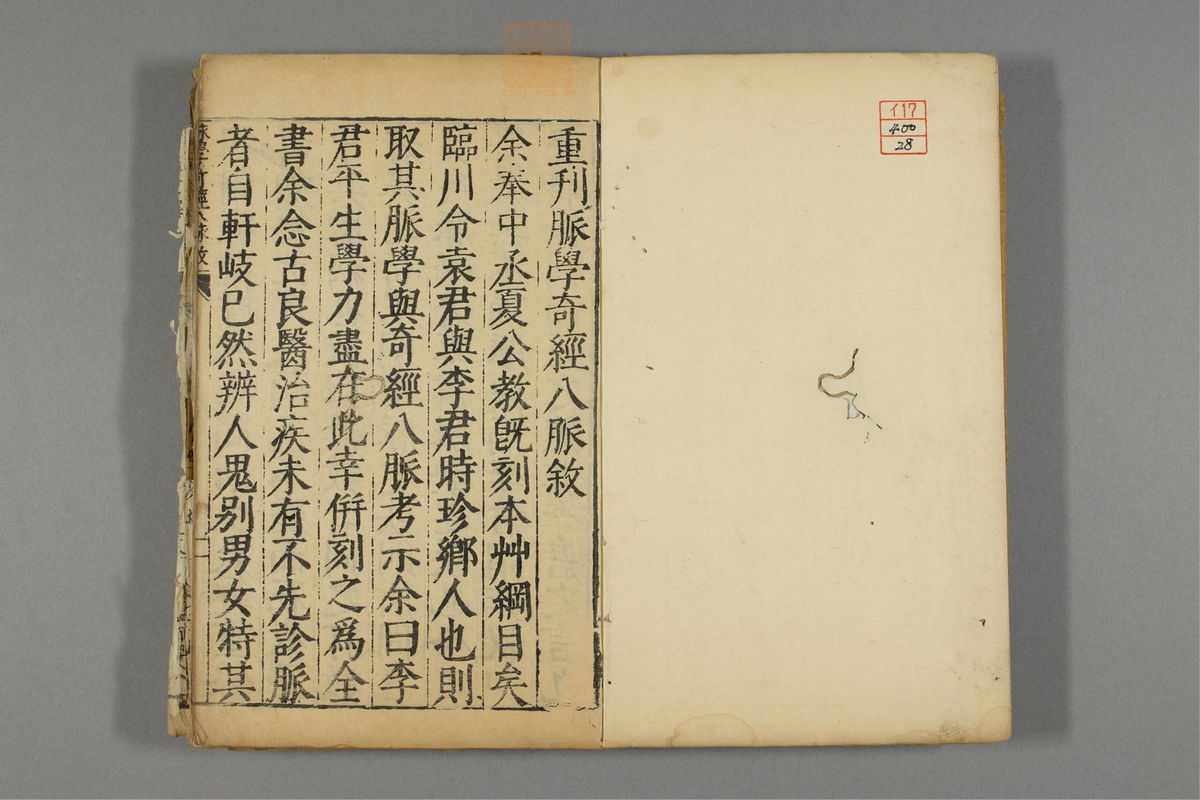 重刋脈學奇經八脈敘
余奉中丞夏公教旣刻本艸綱目矣
臨川令袁君與李君時珍鄉人也則
取其脈學與奇經八脈考示余曰李
君平生學力盡在此幸倂刻之爲全
書余念古良醫治疾未有不先診脈
者自軒岐已然辨人鬼別男女特其
イ17
400
28